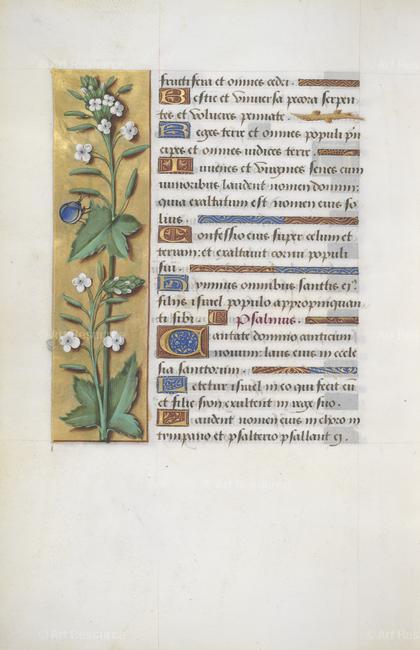 fructifera et omnes cedri.
Bestie et universa pecora serpen
tes et volucres pennate.
Reges terre et omnes populi prin
cipes et omnes iudices terre
Iuvenes et virgines senes cum
iunioribus laudent nomen domini:
quia exaltatum est nomen eius so
lius.
Confessio eius super celum et
terram: et exaltavit cornu populi
sui.
Hymnus omnibus sanctis eius
filiis israel populo appropinquan
ti sibi. Psalmus.
Cantate domino canticum
novum: laus eius in eccle
sia sanctorum.
Letetur israel in eo qui fecit eum
et filie syon exultent in rege suo.
Laudent nomen eius in choro in
tympano et psalterio psallant ei.
© Art Resource